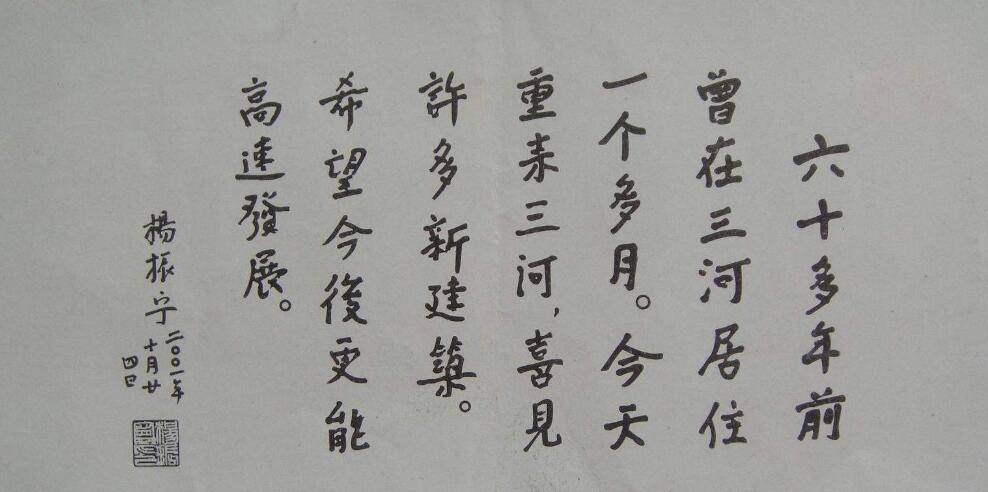 六十多年前
曾在三河居住
一个多月。今天
重来三河，喜見
許多新建築。
希望今後更能
高速發展。
楊振宁
二〇〇一年
十月廿
四日